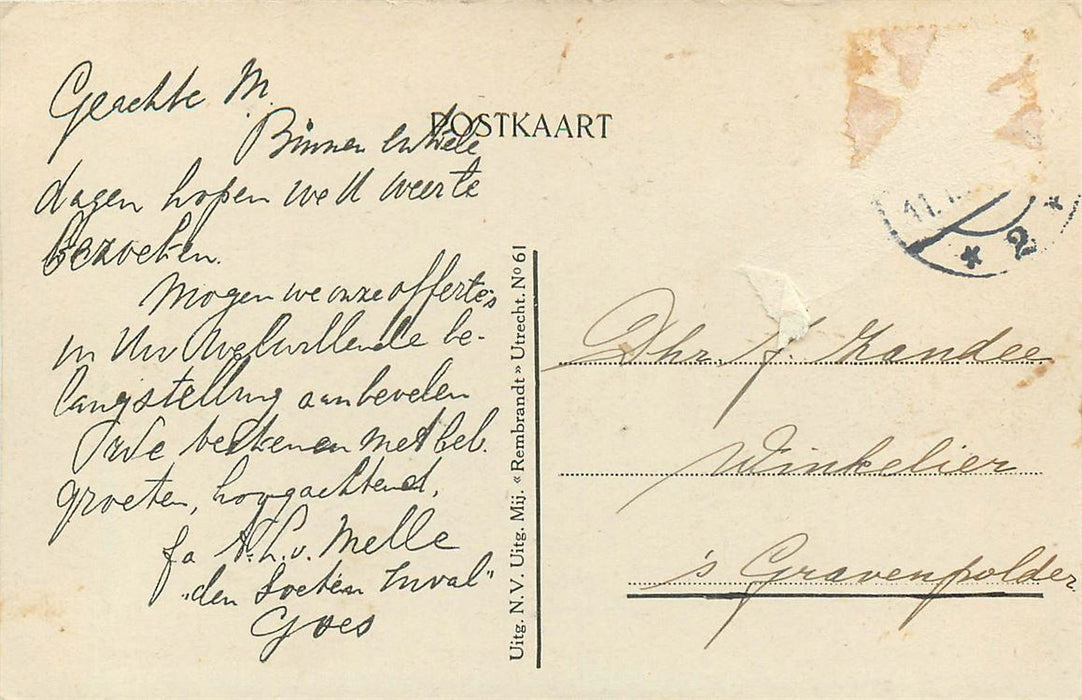 POSTKAART
Geachte M.
Binnen enkele
dagen hopen we U weer te
bezoeken.
Mogen we onze offerte's
in Uw welwillende be-
langstelling aanbevelen
We teekenen met bel.
groeten, hoogachtend,
fa A.L.v. Melle
"den Soeten Inval"
Goes
Uitg. N.V. Uitg. Mij. «Rembrandt» Utrecht. Nº 61
11.
* 2 *
Dhr. J. Zandee
Winkelier
's Gravenpolder